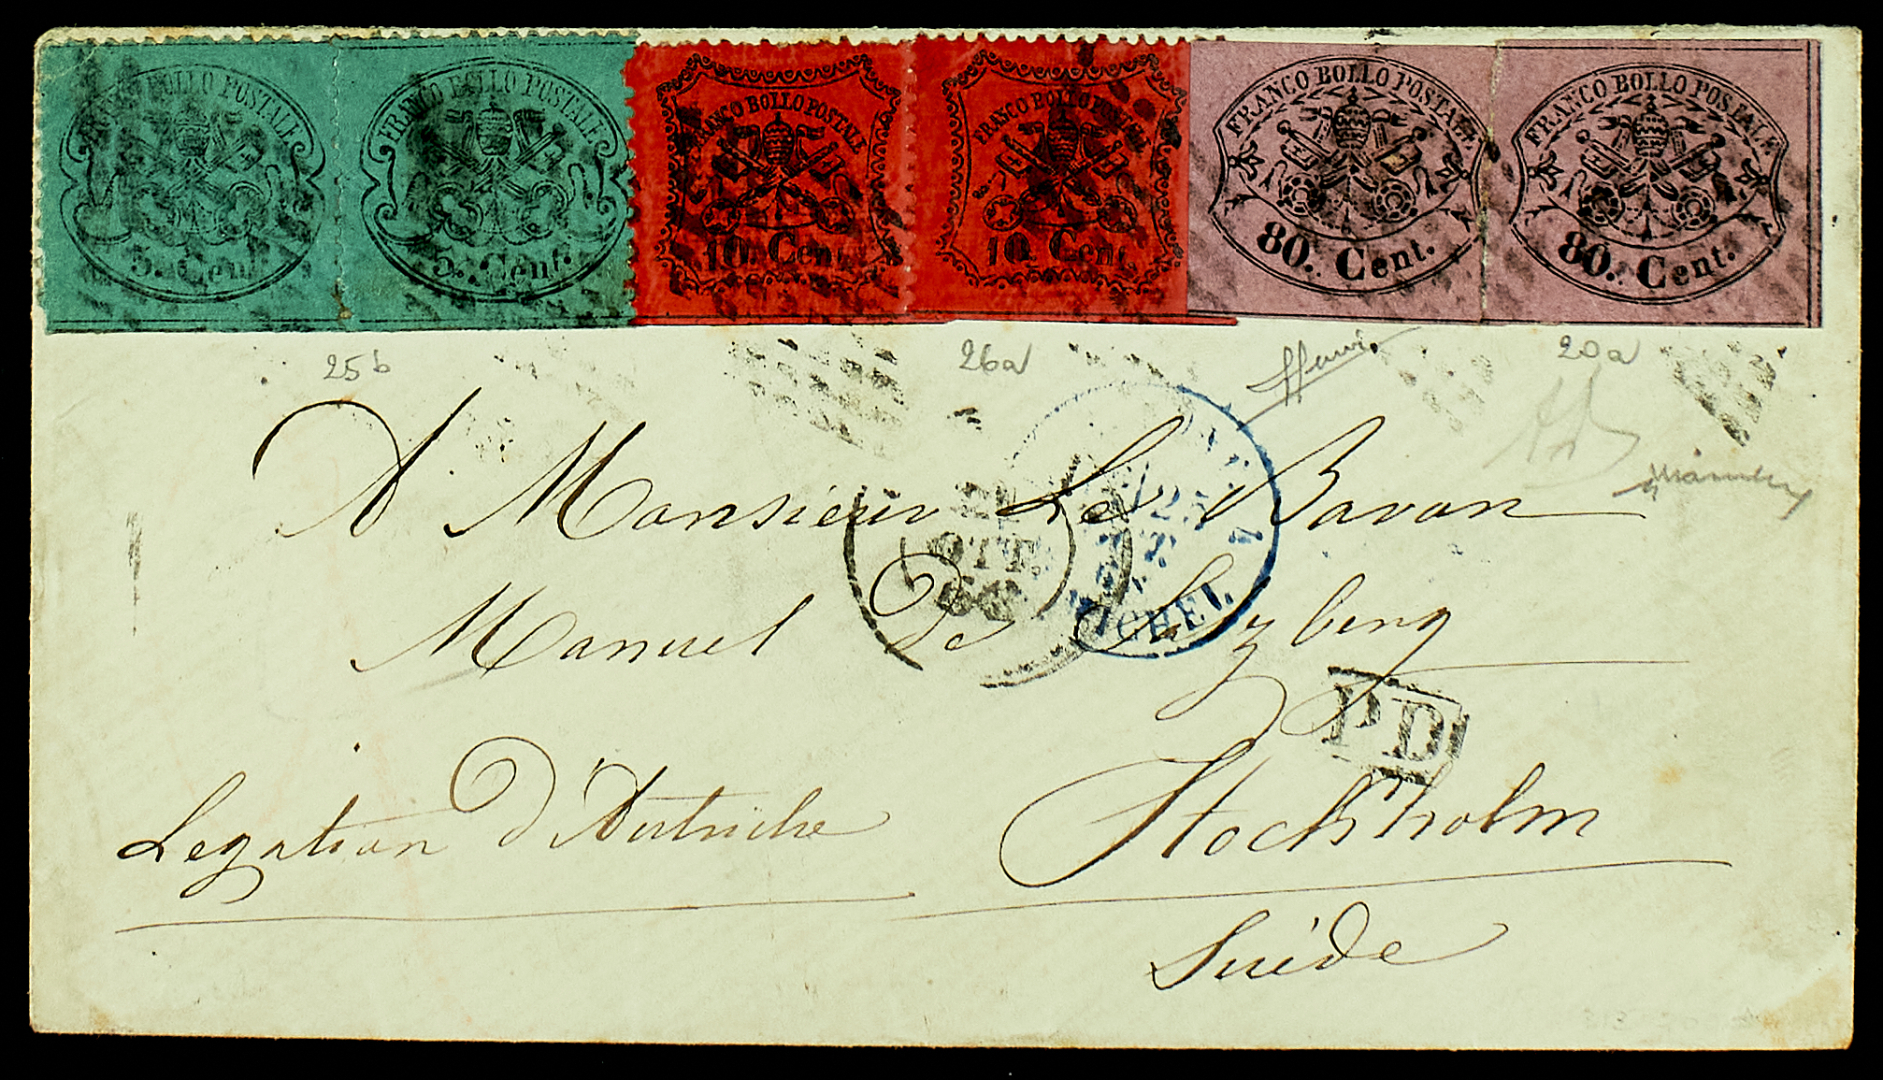 FRANCO BOLLO POSTALE
5. Cent.
FRANCO BOLLO POSTALE
5. Cent.
FRANCO BOLLO POSTALE
10. Cent.
FRANCO BOLLO POSTALE
10 Cent.
FRANCO BOLLO POSTALE
80. Cent.
FRANCO BOLLO POSTALE
80. Cent.
25b
26a
20a
A Monsieur Le Baron
OTT.
25
4
MICHEL
Manuel De
PD
Legation d'Autriche
Stockholm
Suède